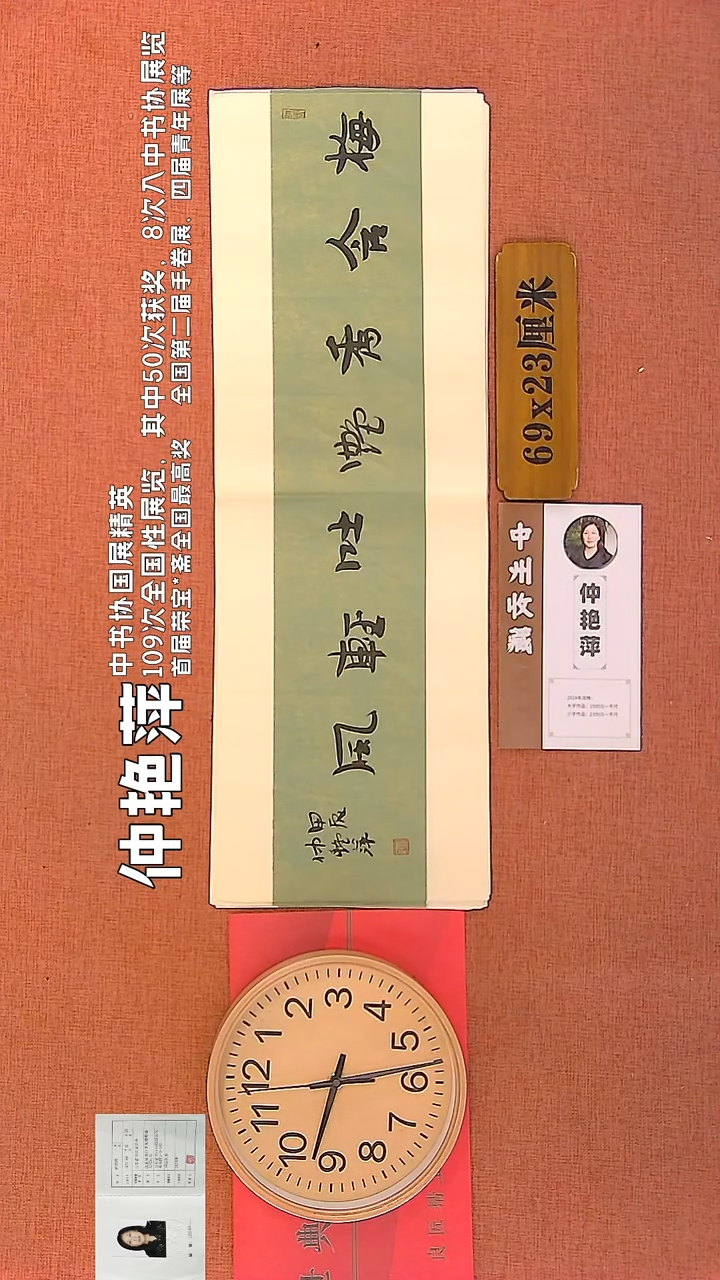 仲艳萍
中书协国展精英
109次全国性展览，其中50次获奖，8次入中书协展览
首届荣宝*斋全国最高奖 全国第二届手卷展、四届青年展等
梅含秀艷吐輕風
甲辰
仲艷萍
69x23厘米
仲艳萍
12
1
2
3
4
5
6
7
8
9
10
11
典
良匠精